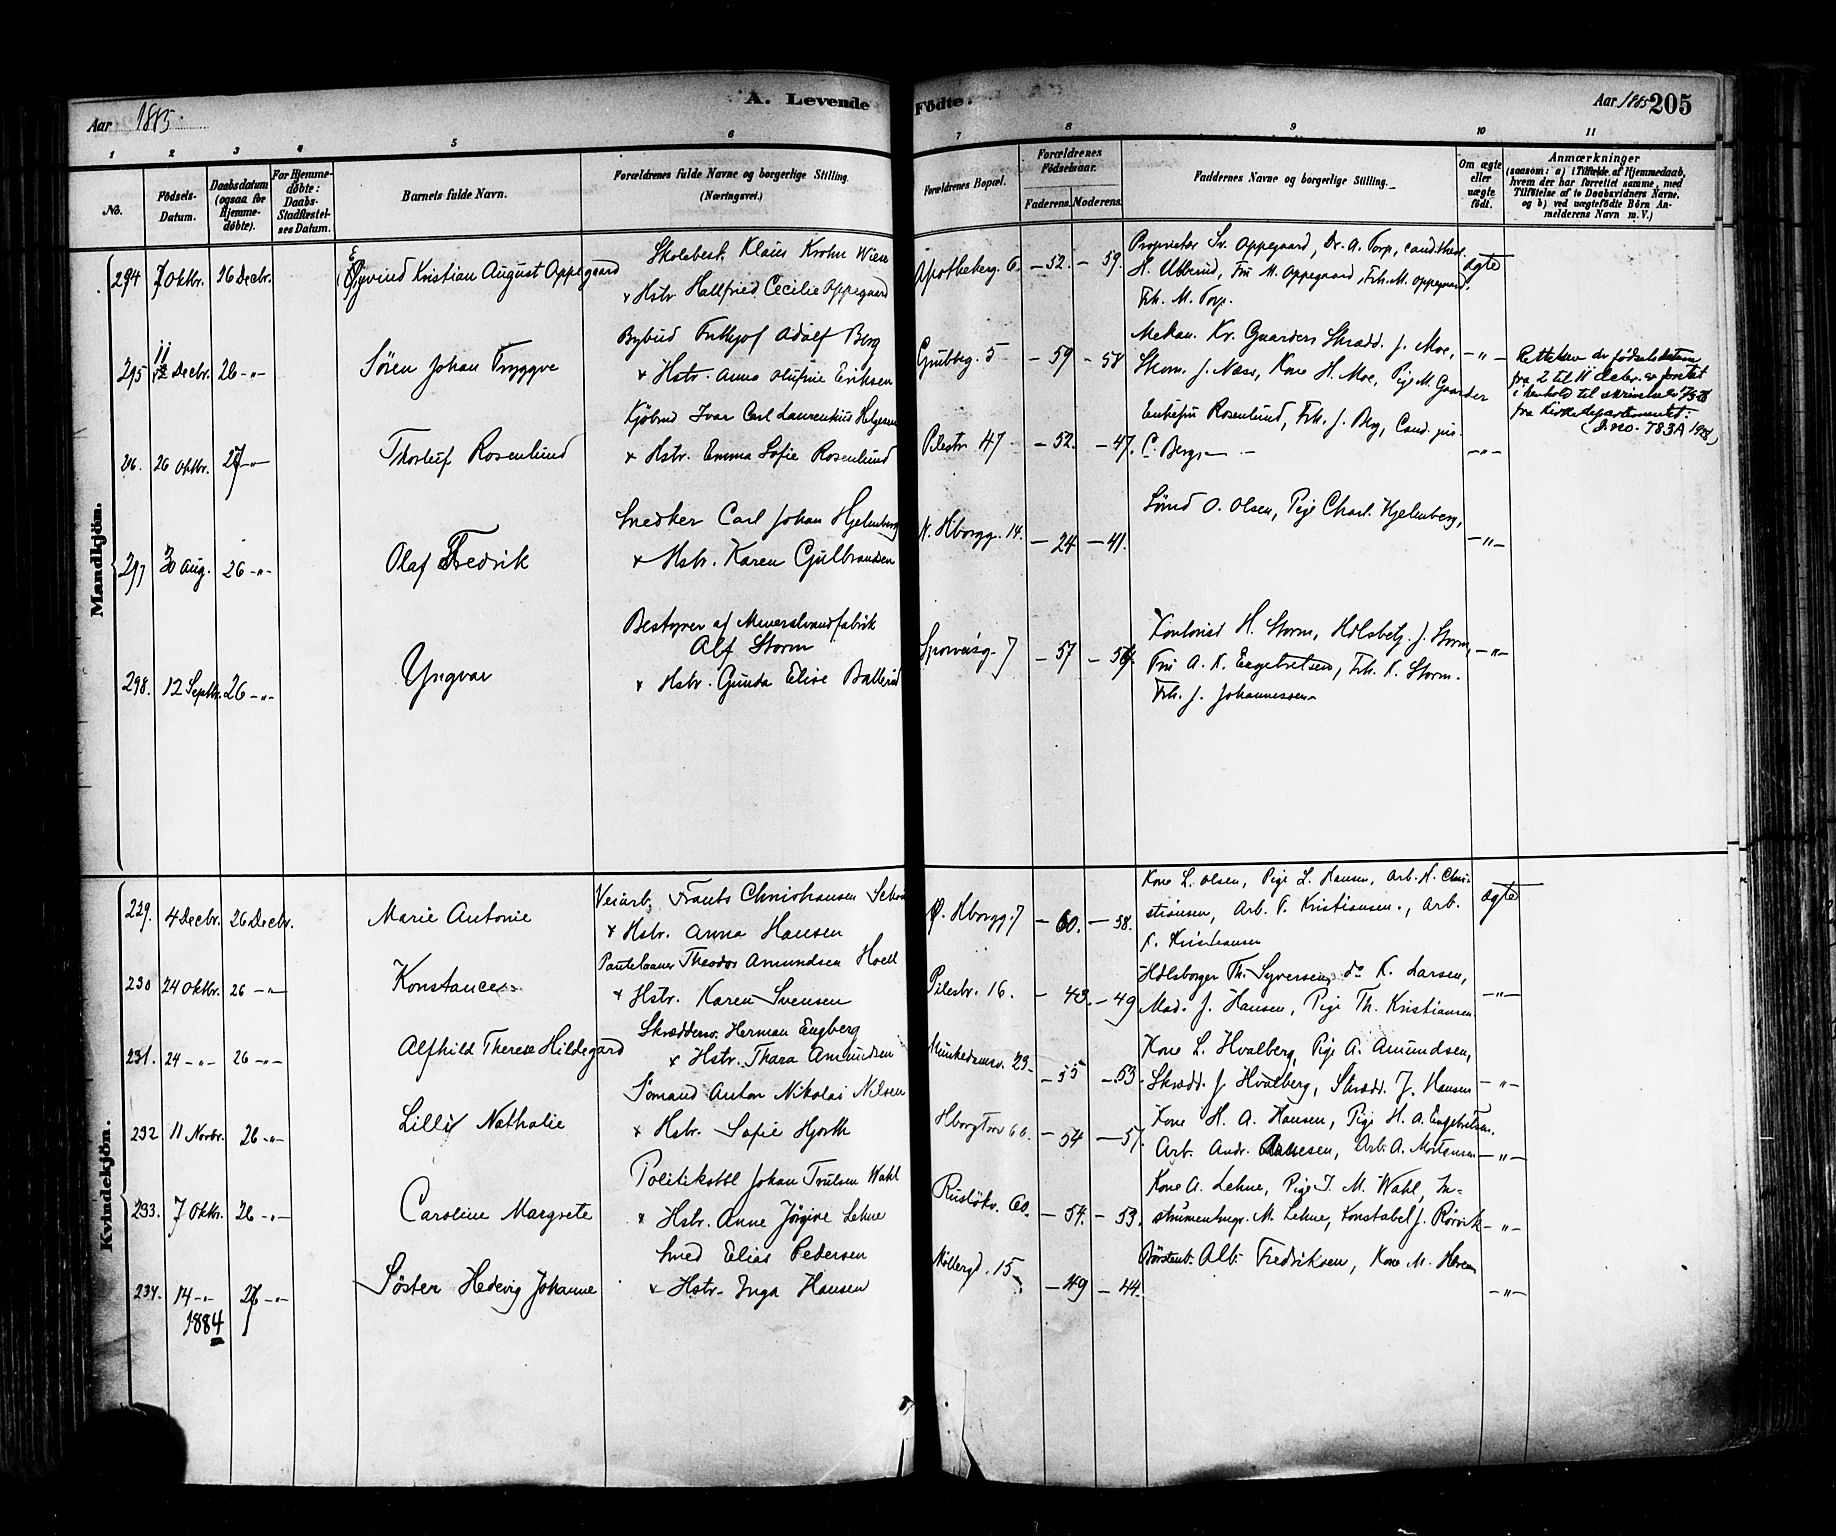 Aar 1885.
A. Levende Födte.
Aar 1885 205
1 2 3 4 5 6 7 8 9 10 11
No.
Födsels-Datum.
Daabsdatum (ogsaa for Hjemme-döbte).
For Hjemme-döbte: Daabs-Stadfæstel-ses Datum.
Barnets fulde Navn.
Forældrenes fulde Navne og borgerlige Stilling. (Næringsvei.)
Forældrenes Bopæl.
Forældrenes Födselsaar.
Faderens. Moderens.
Faddernes Navne og borgerlige Stilling.
Om ægte eller uægte födt.
Anmærkninger
(saasom: a) i Tilfælde af Hjemmedaab,
hvem der har forrettet samme, med
Tilföielse af to Daabsvidners Navne,
og b) ved uægtefödte Börn An-
melderens Navn m. V.)
Mandkjön.
294 7 Oktbr. 26 Decbr. Øyvind Kristian August Oppegaard
Skolebest. Klaus Krohn Wiese
+ Hstr. Hallfried Cecilie Oppegaard
Apothekerg. 6. – 52. – 59.
Proprietær Sv. Oppegaard, Dr. A. Torp, cand. theol.
H. Ullerud, Fru M. Oppegaard, Frk. M. Oppegaard,
Frk. M. Torp.
ægte
295 11 Decbr. 26 –"– Sören Johan Tryggve
Bybud Frithjof Adolf Berg
+ Hstr. Anna Olufine Eriksen
Grubbeg. 5 – 59 – 58
Mekan. Kr. Gaarder, Skrædd. J. Moe,
Skom. J. Næss, Kone H. Moe, Pige M. Gaarder
–"–
Rettelsen av fødselsdatum
fra 2 til 11 decbr. er foretat
i henhold til skrivelse
fra Kirkedepartementet.
(J. no. 783 A 1928)
26 Oktbr. 26 –"– Thorleif Rosenlund
Kjöbmd Ivar Carl Laurentius Helgesen
+ Hstr. Emma Sofie Rosenlund
Pilestr 47 – 52. – 47.
Enkefru Rosenlund, Frk. J. Berg, Cand. jur.
C. Berg –
–"–
297 30 Aug. 26 –"– Olaf Fredrik
Snedker Carl Johan Hjelmberg
+ Hstr. Karen Gulbrandsen
N. Hborgg. 14. – 24 – 41.
Sömd O. Olsen, Pige Charl. Hjelmberg,
–"–
298. 12 Septbr. 26 –"– Yngvar
Bestyrer af Mineralvandfabrik
Alf Storm
+ Hstr. Gunda Elise Ballerud
Sporveisg. 7 – 57 – 59.
Kontorist H. Storm, Hdlsbetj. J. Storm,
Fru A. K. Engebretsen, Frk. K. Storm.
Frk. J. Johannessen
–"–
Kvindekjön.
229. 4 Decbr. 26 Decbr. Marie Antonie
Veiarb. Frants Christiansen
+ Hstr. Anna Hansen
Ø. Hborgg. 7 – 60. – 58.
Kone L. Olsen, Pige L. Hansen, Arb. H. Chri-
stiansen, Arb. P. Kristiansen., Arb.
K. Kristiansen
ægte
230 24 Oktbr. 26 –"– Konstance
Pantelaaner Theodor Amundsen Hoell
+ Hstr. Karen Svensen
Pilestr. 16. – 43. – 49
Hdlsborger Th. Syversen, do K. Larsen,
Mad. J. Hansen, Pige Th. Kristiansen
–"–
231. 24 –"– 26 –"– Alfhild Therese Hildegard
Skræddersv. Herman Engberg
+ Hstr. Thara Amundsen
Munkedamsv. 23 – 55 – 53.
Kone L. Hvalberg, Pige A. Amundsen,
Skrædd. J. Hvalberg, Skrædd. J. Hansen
–"–
232 11 Novbr. 26 –"– Lilly Nathalie
Sömand Anton Nikolai Nilsen
+ Hstr. Sofie Hjorth
Hborgtorv 6 – 54 – 57.
Kone H. A. Hansen, Pige H. A. Engebretsen.
Arb. Andr. Hansen, Arb. A. Mortensen
–"–
233. 7 Oktbr. 26 –"– Caroline Margrete
Politikstbl Johan Trulsen Wahl
+ Hstr. Anne Jörgine Lehne
Ruslökv. 60. – 54. – 53.
Kone A. Lehne, Pige J. M. Wahl, In-
strumentmgr. M. Lehne, Konstabel J. Rörvik
–"–
234. 14 –"– 1884 26 –"– Söster Hedevig Johanne
Smed Elias Pedersen
+ Hstr. Inga Hansen
Möllergd. 15 – 49 – 44.
Börstenb. Alb. Fredriksen, Kone M.
–"–